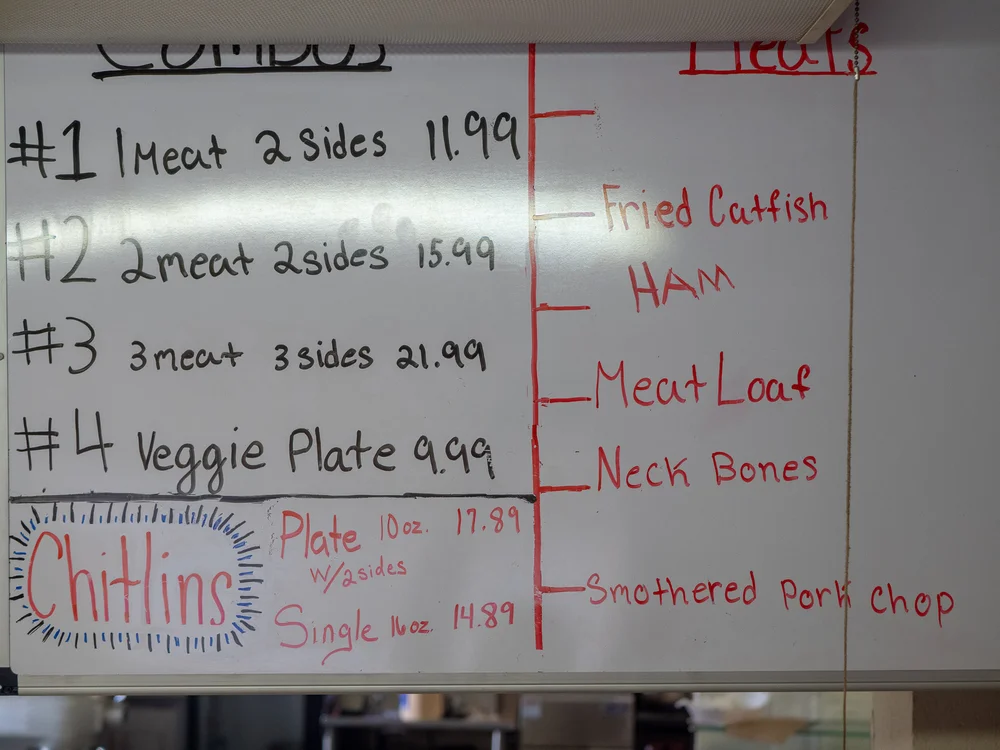 Combos
#1 1 Meat 2 Sides 11.99
#2 2 meat 2 sides 15.99
#3 3 meat 3 sides 21.99
#4 Veggie Plate 9.99
Chitlins
Plate 10 oz. 17.89
W/2 sides
Single 16 oz. 14.89
Meats
Fried Catfish
HAM
Meat Loaf
Neck Bones
Smothered Pork Chop